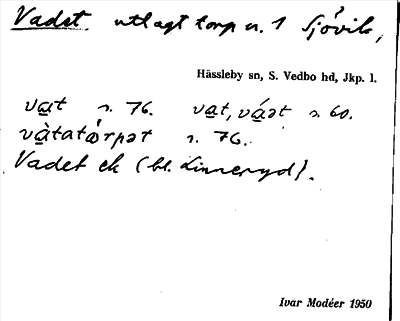 Vadet. utlagt torp u. 1 Sjövik,
Hässleby sn, S. Vedbo hd, Jkp. l.
va̤t s. 76. va̤t, vá̤ət s. 60.
và̤tatɷ́rpət s. 76.
Vadet ek (bl. Linneryd).
Ivar Modéer 1950